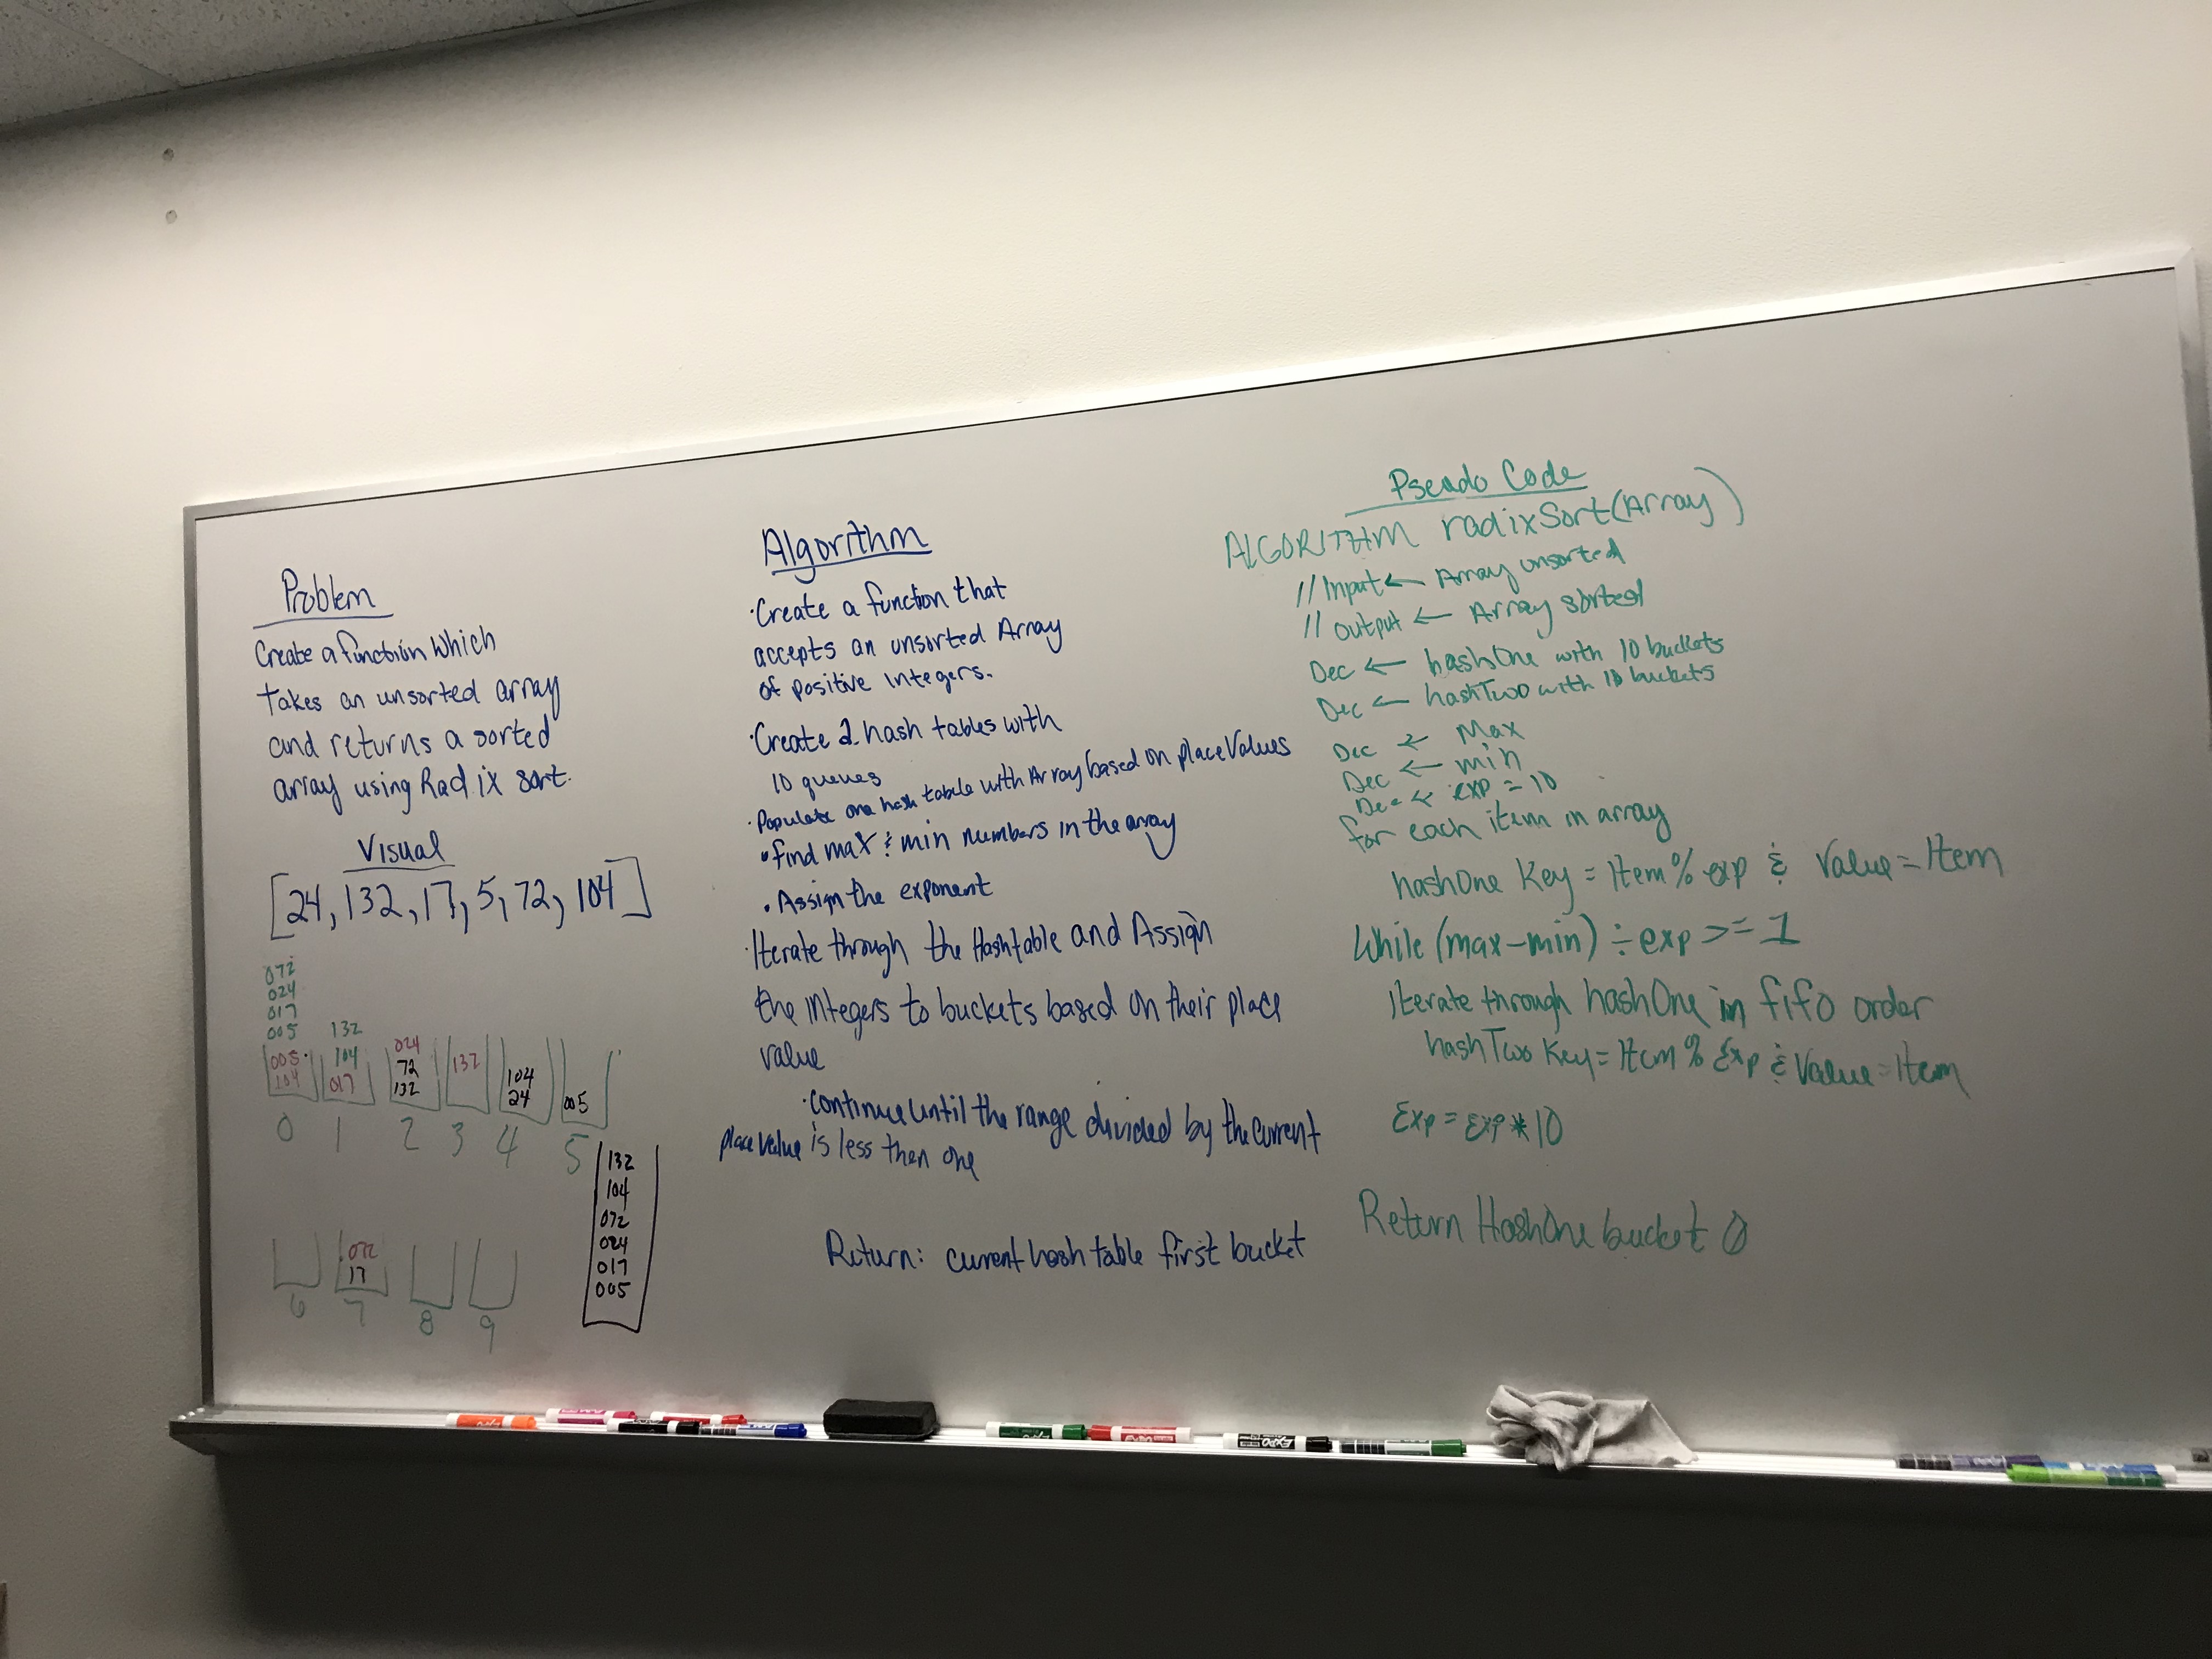 Problem
Create a function which
takes an unsorted array
and returns a sorted
array using Radix sort.
Visual
[24, 132, 17, 5, 72, 104]
072
024
017
005
132
104
005
104
017
024
72
132
132
104
24
005
0 1 2 3 4 5
072
17
6 7 8 9
132
104
072
024
017
005
Algorithm
·Create a function that
accepts an unsorted Array
of positive integers.
·Create 2 hash tables with
10 queues
·Populate one hash table with Array based on place Values
•find max & min numbers in the array
•Assign the exponent
·Iterate through the Hashtable and Assign
the integers to buckets based on their place
value
·continue until the range divided by the current
place value is less then one
Return: current hash table first bucket
Pseudo Code
ALGORITHM radixSort(Array)
// Input ← Array unsorted
// output ← Array sorted
Dec ← hashOne with 10 buckets
Dec ← hashTwo with 10 buckets
Dec ← Max
Dec ← min
Dec ← exp = 10
for each item in array
hashOne Key = Item % exp & Value = Item
While (max-min) ÷ exp >= 1
Iterate through hashOne in fifo order
hashTwo Key = Item % Exp & Value = Item
Exp = Exp * 10
Return HashOne bucket 0
EXPO